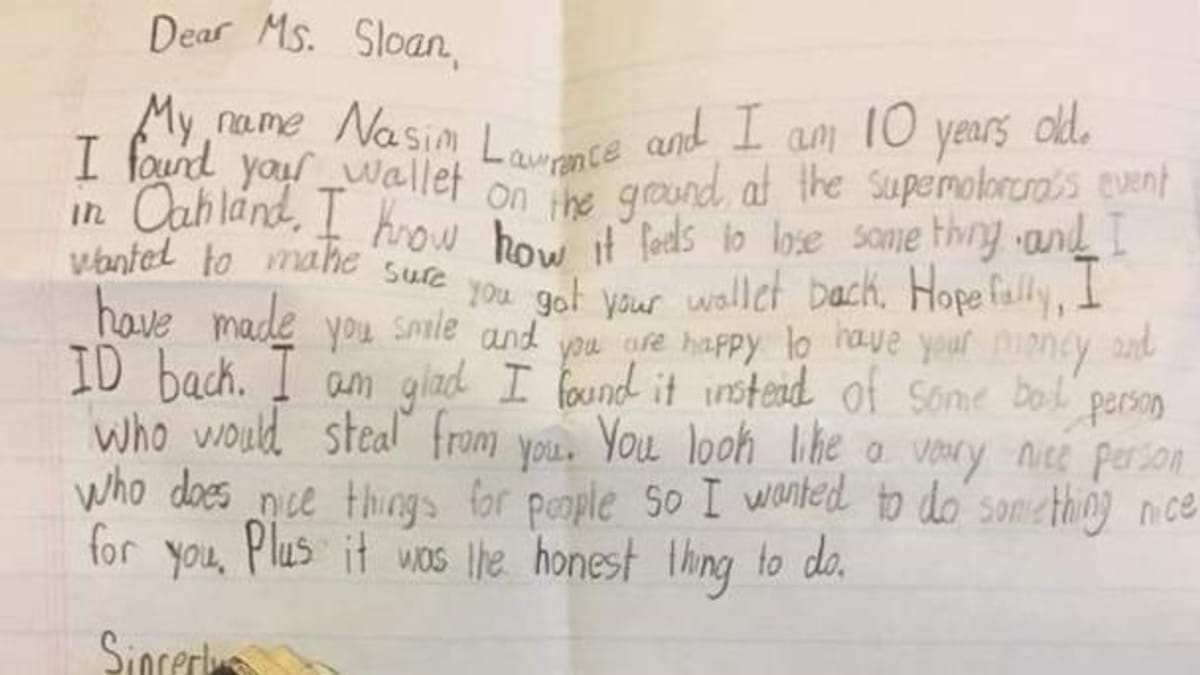 Dear Ms. Sloan,
My name Nasim Lawrence and I am 10 years old.
I found your wallet on the ground at the supermotorcross event
in Oakland. I know how it feels to lose something and I
wanted to make sure you got your wallet back. Hopefully, I
have made you smile and you are happy to have your money and
ID back. I am glad I found it instead of some bad person
who would steal from you. You look like a veary nice person
who does nice things for people so I wanted to do something nice
for you. Plus it was the honest thing to do.